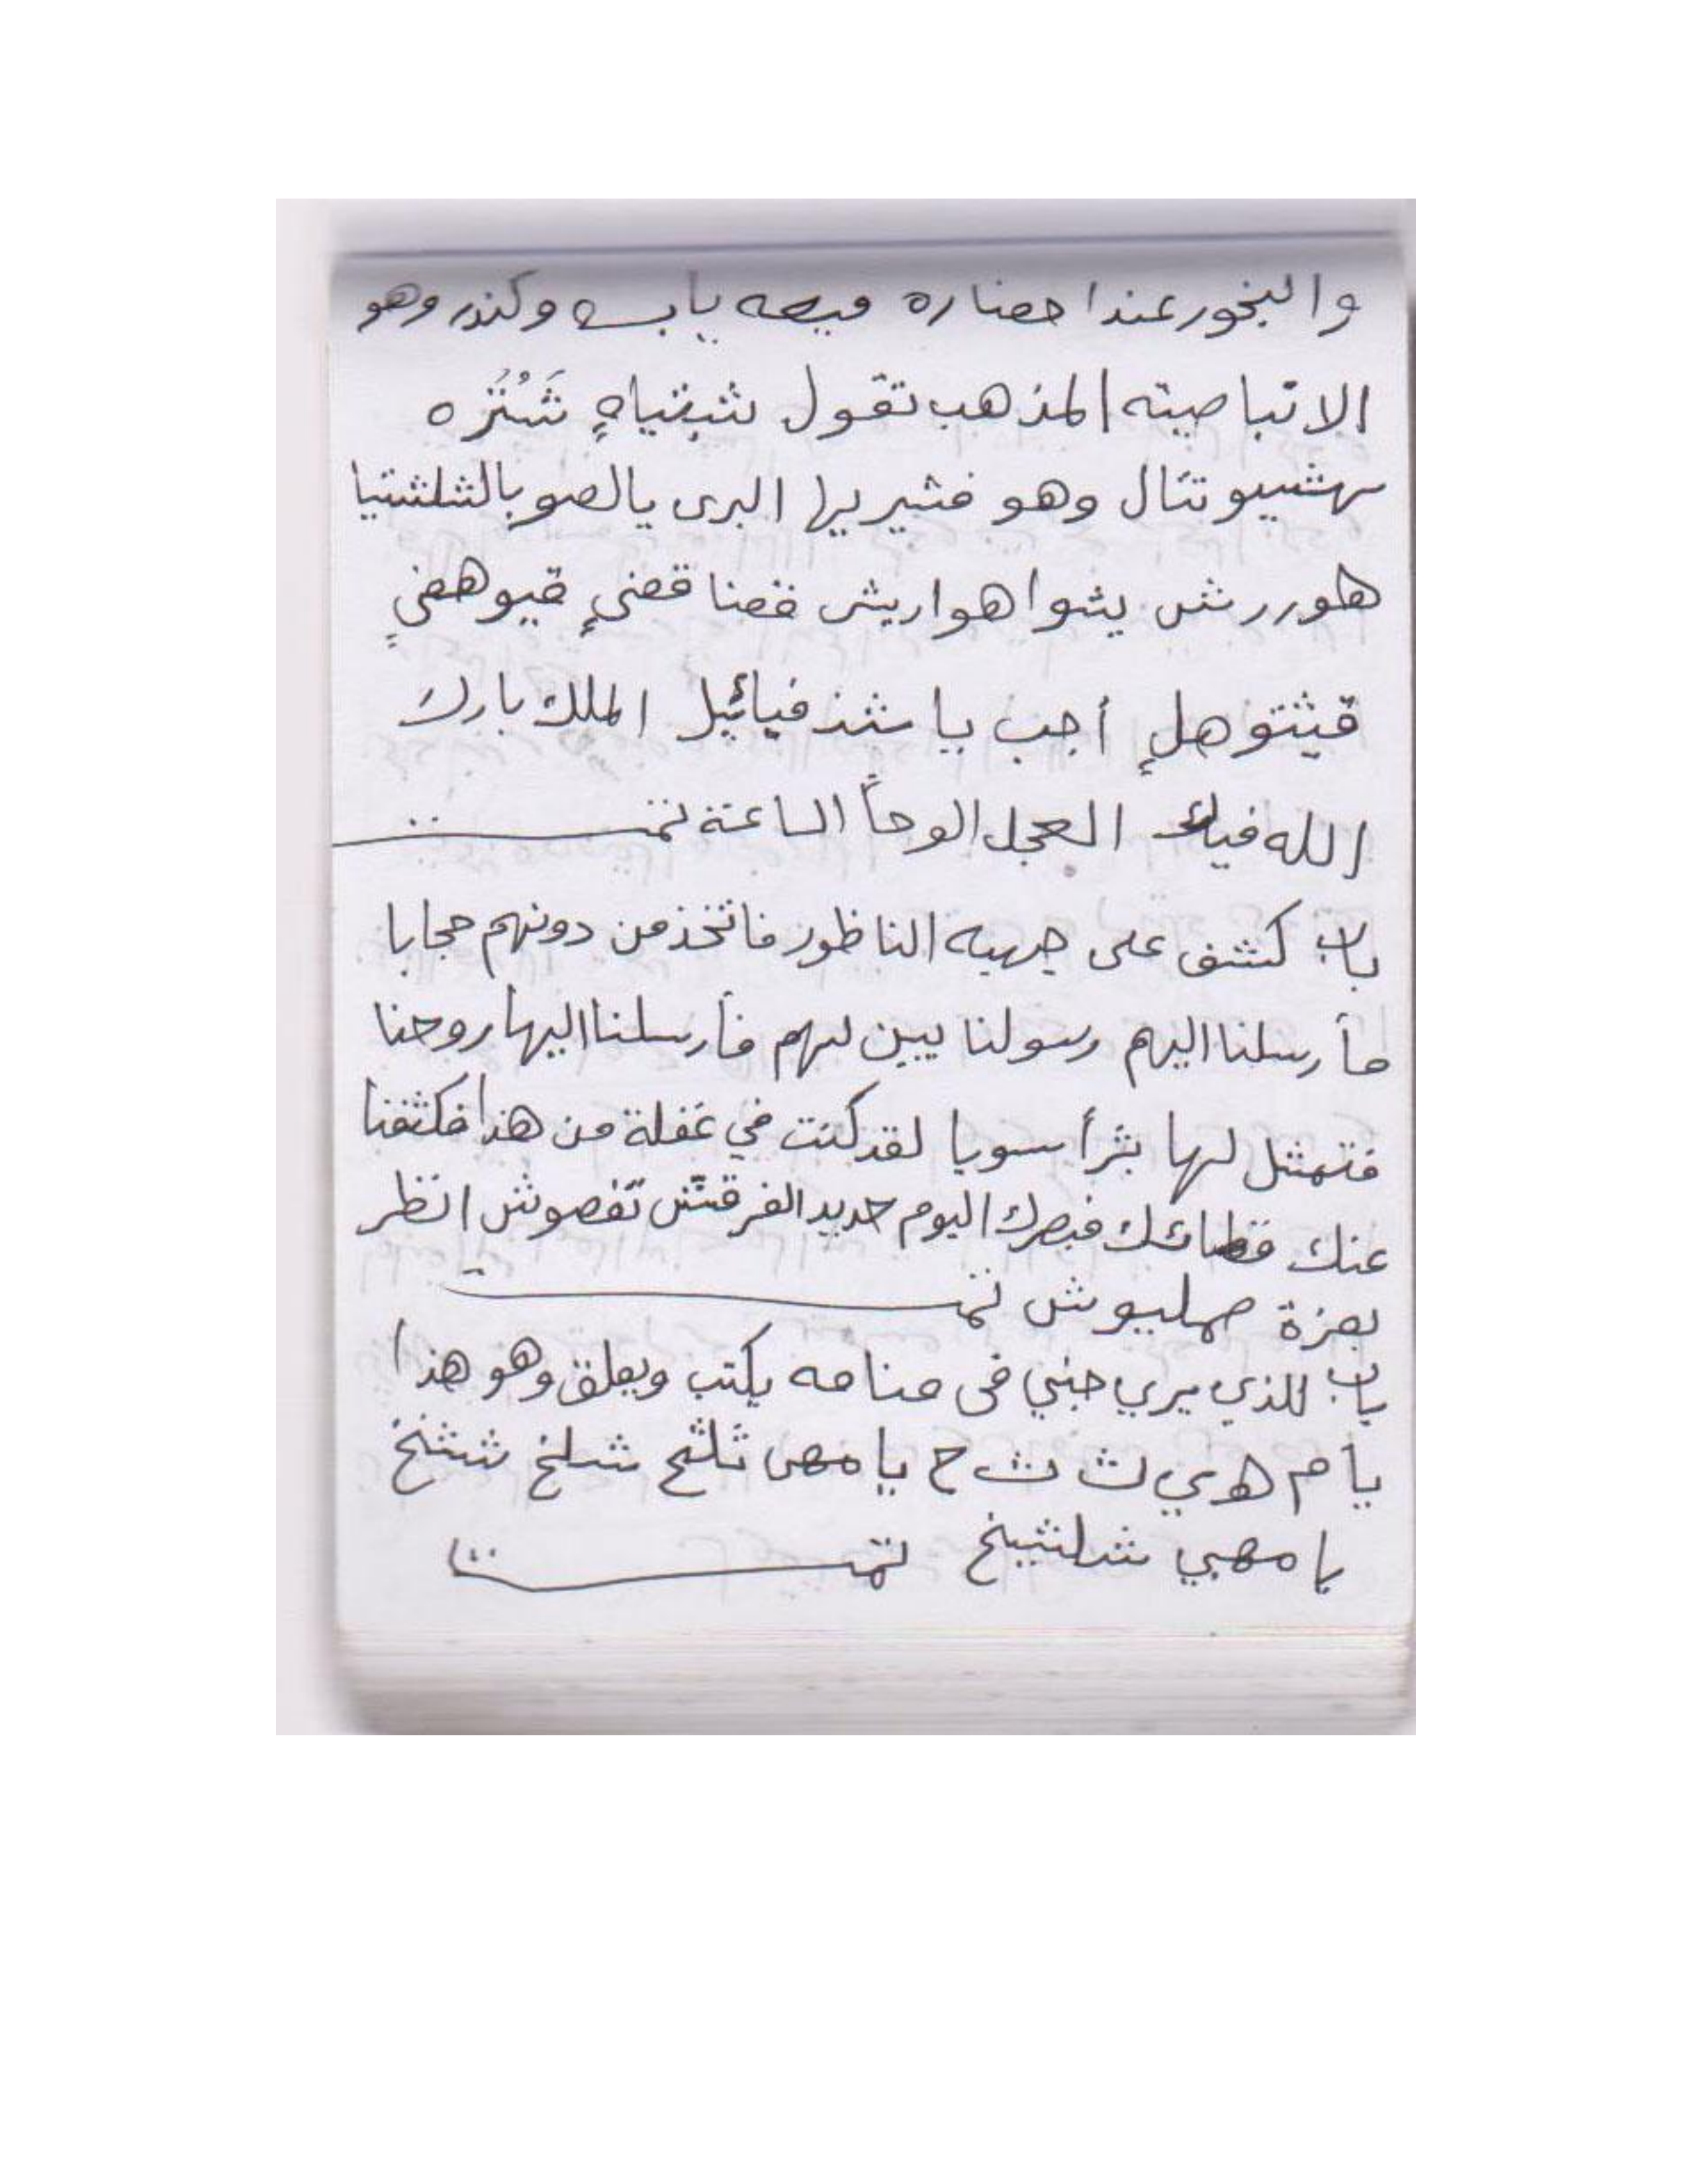 والبخور عند احضاره ميعه يابسه وكندر وهو
الانباصيته المذهب تقول شبقياهٍ شَنُتَزه
سهشيو تئال وهو فشير يها البرى يالصو بالشلشتيا
هوررش يشوا هواريش قصنا قضيٍ قيو هضيٍ
قيثتو هلٍ أجب يا شذفيائيل الملك بارك
الله فيك العجل الوحاً الساعة تمت
باب كشف على جهيه الناظور فاتخذ من دونهم حجابا
فأرسلنا اليهم رسولنا يبين لهم فأرسلنا اليها روحنا
فتمثل لها بشرأ سويا لقد كنت في غفلة من هذا فكشفنا
عنك غطائك فبصرك اليوم حديد الفرقتش تفصوش انظر
بعزة صمليوش تمت
باب للذي يرى جني في منامه يكتب ويعلق وهو هذا
يا م ه ي ث ث ح يا مهى ثلثح شلخ شثخ
يا مهبي شلشيخ تمت